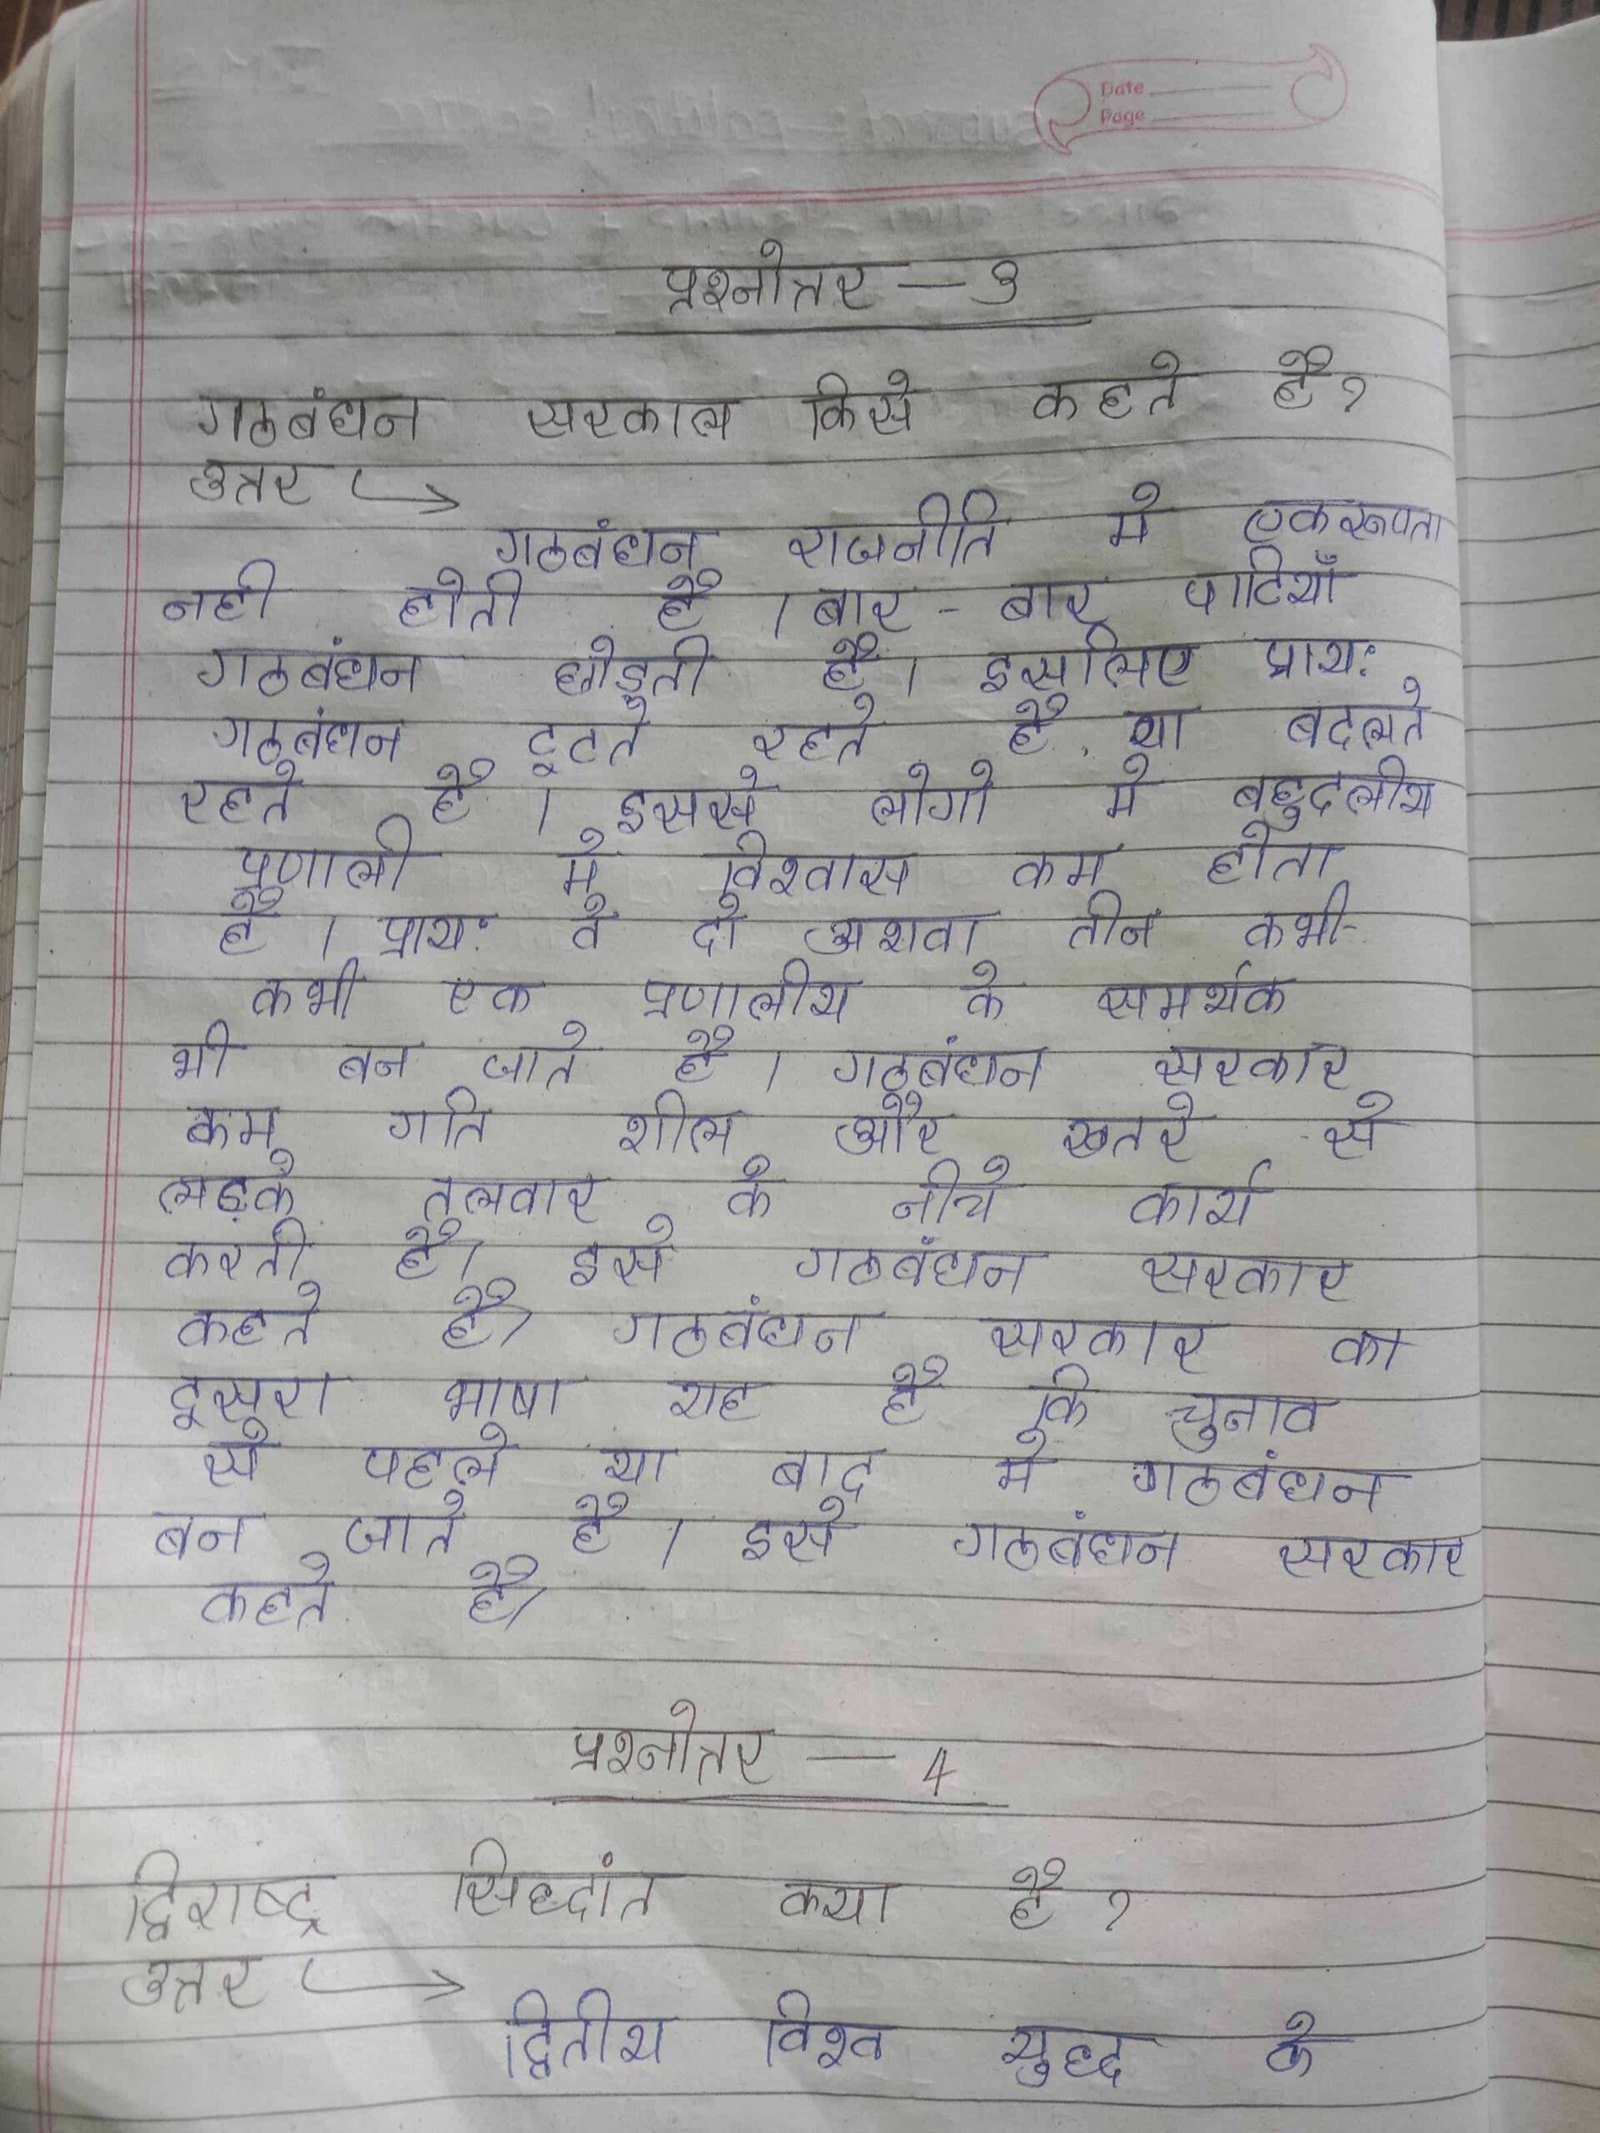 Date
Page
प्रश्नोत्तर — 3
गठबंधन सरकाल किसे कहते है?
उत्तर ↳
गठबंधन राजनीति मे एकरूपता
नही होती है । बार - बार पाटियाँ
गठबंधन छोड़ती है । इसलिए प्रायः
गठबंधन टूटते रहते है, या बदलते
रहते है । इससे लोगो मे बहुदलीय
प्रणाली मे विश्वास कम होता
है । प्रायः वे दो अथवा तीन कभी-
कभी एक प्रणालीय के समर्थक
भी बन जाते है । गठबंधन सरकार
कम गति शील और खतरे से
लड़के तलवार के नीचे कार्य
करती है। इसे गठबंधन सरकार
कहते है। गठबंधन सरकार का
दूसरा भाषा यह है कि चुनाव
से पहले या बाद मे गठबंधन
बन जाते है । इसे गठबंधन सरकार
कहते है।
प्रश्नोत्तर — 4
द्विराष्ट्र सिध्दांत क्या है ?
उत्तर ↳
द्वितीय विश्व युध्द के